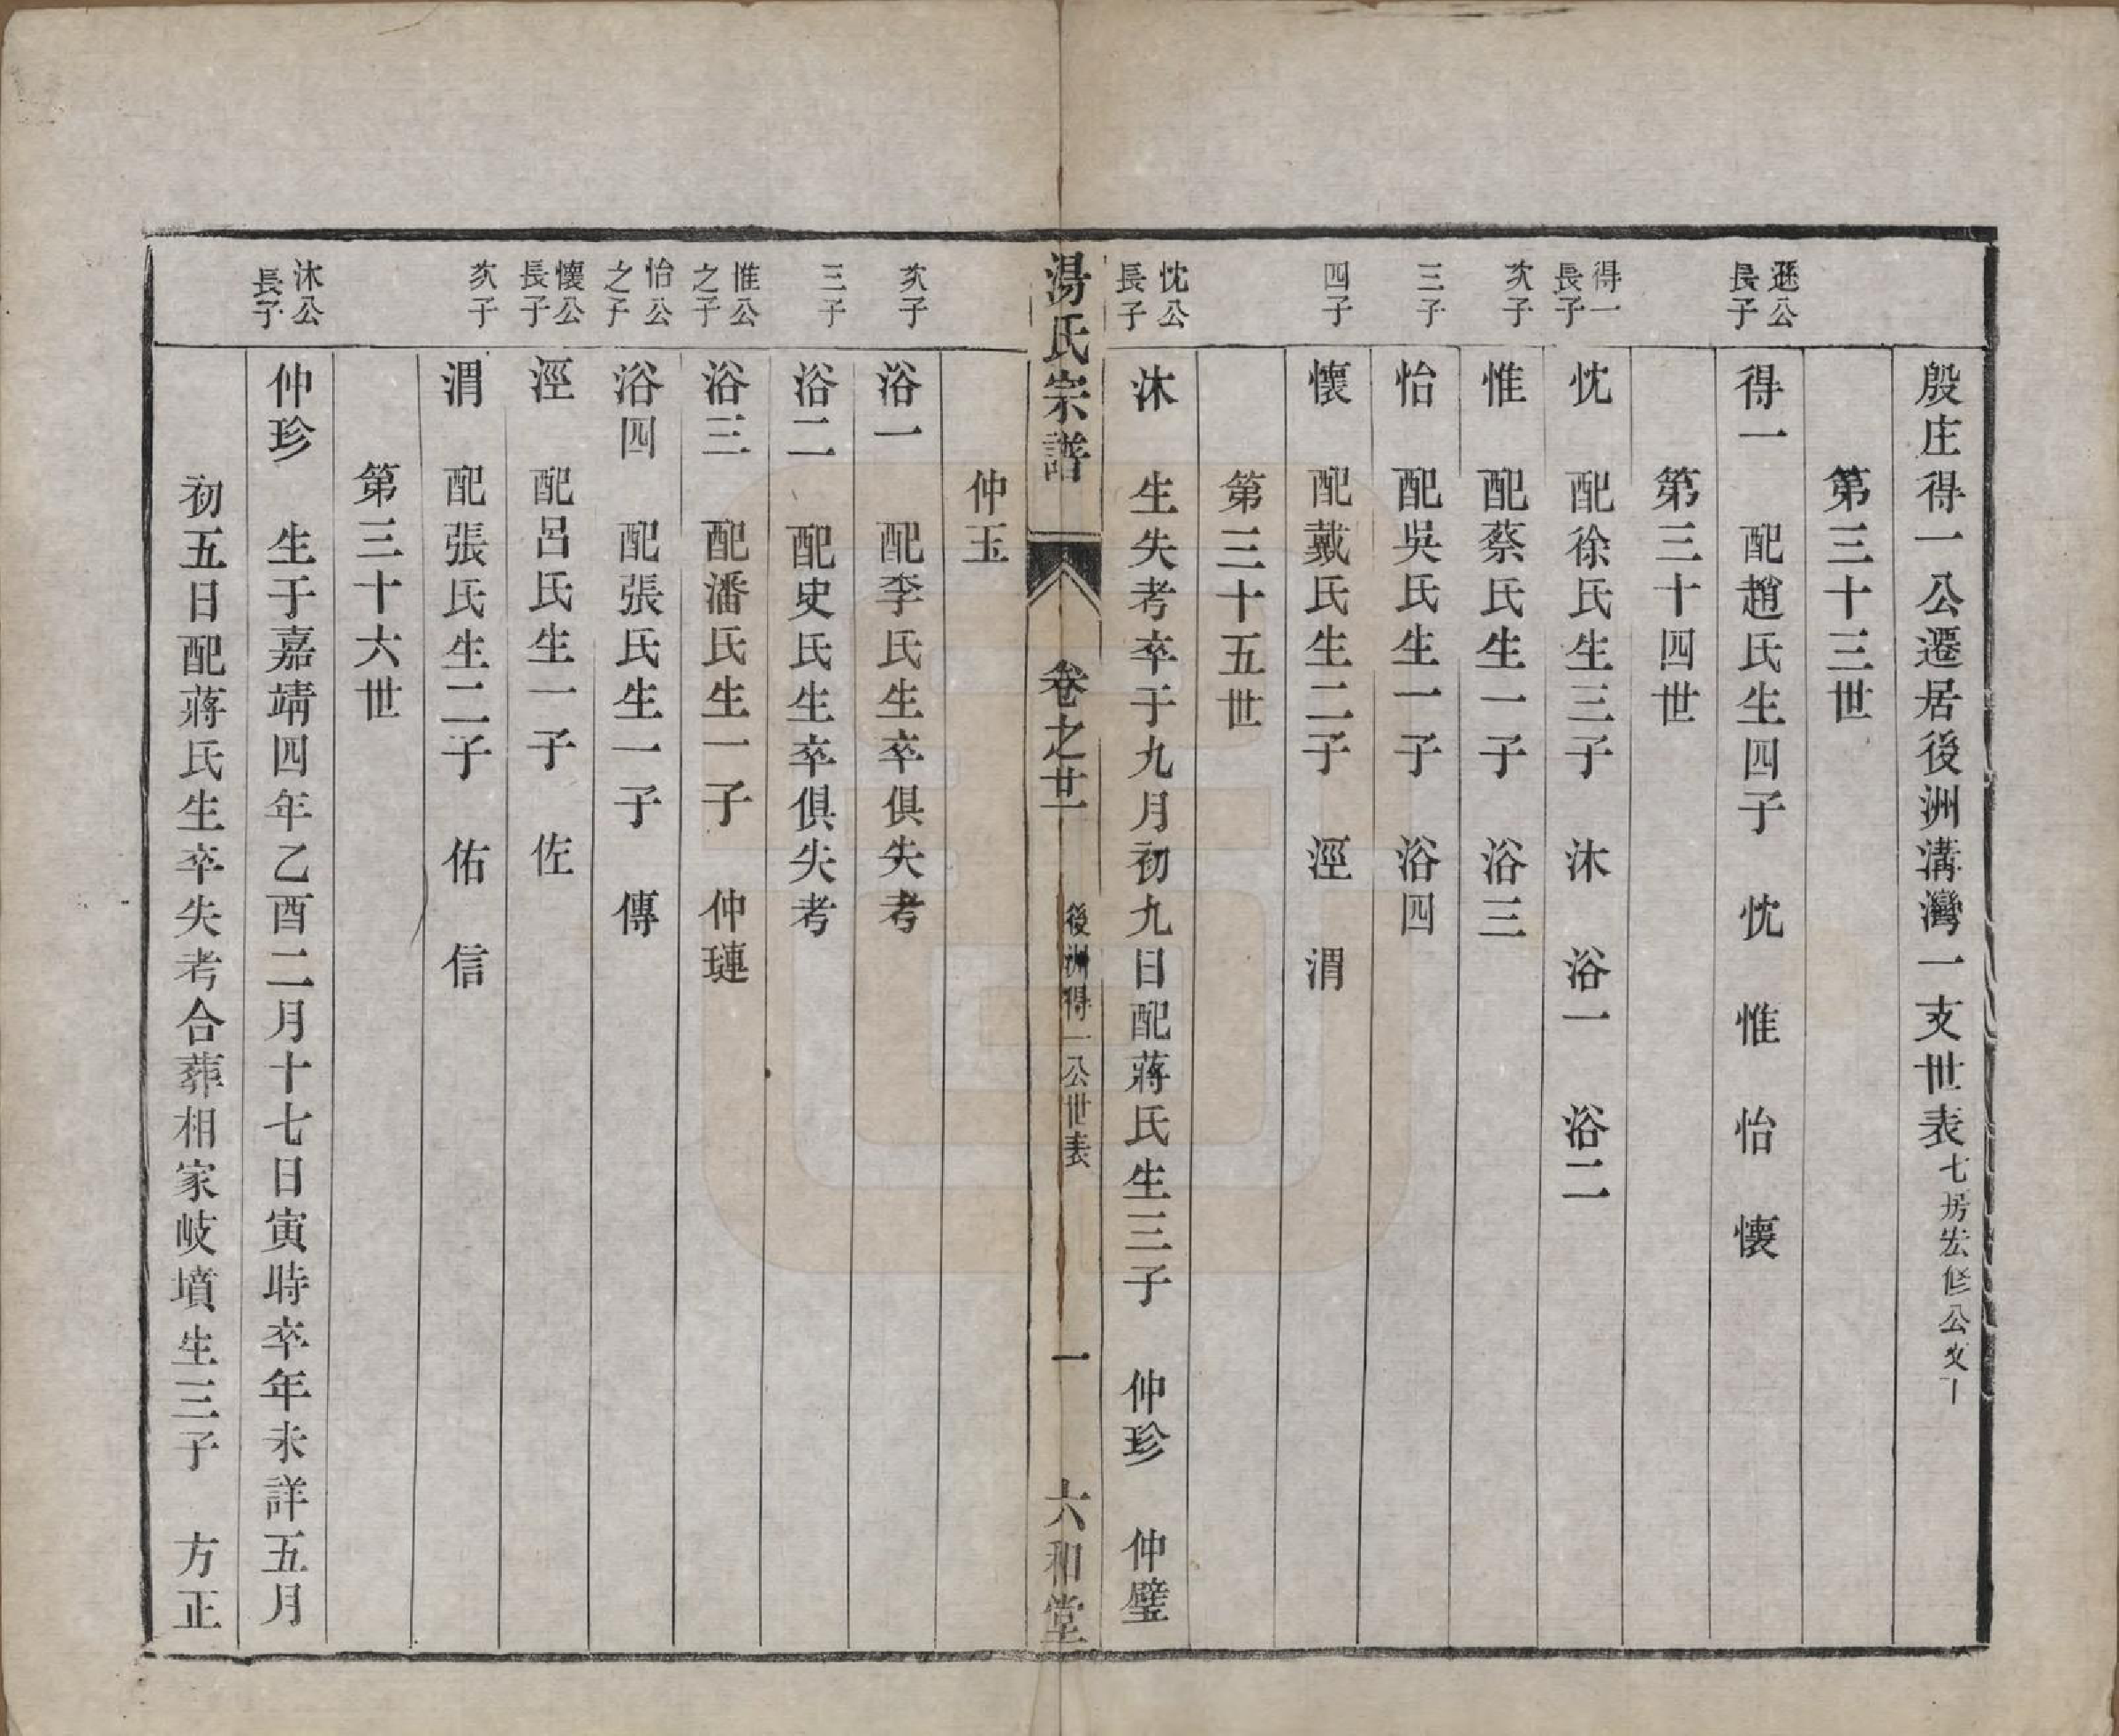 殷庄得一公遷居後洲溝灣一支世表七房宏修公支
第三十三世
遜公長子
得一 配趙氏生四子 忱 惟 怡 懷
第三十四世
得一長子
忱 配徐氏生三子 沐 浴一 浴二
次子
惟 配蔡氏生一子 浴三
三子
怡 配吳氏生一子 浴四
四子
懷 配戴氏生二子 涇 渭
第三十五世
忱公長子
沐 生失考卒于九月初九日配蔣氏生三子 仲珍 仲璧
湯氏宗譜 卷之廿一 後洲得一公世表 一 六和堂
仲玉
次子
浴一 配李氏生卒俱失考
三子
浴二 配史氏生卒俱失考
惟公之子
浴三 配潘氏生一子 仲璉
怡公之子
浴四 配張氏生一子 傳
懷公長子
涇 配呂氏生一子 佐
次子
渭 配張氏生二子 佑 信
第三十六世
沐公長子
仲珍 生于嘉靖四年乙酉二月十七日寅時卒年未詳五月
初五日配蔣氏生卒失考合葬相家岐墳生三子 方正